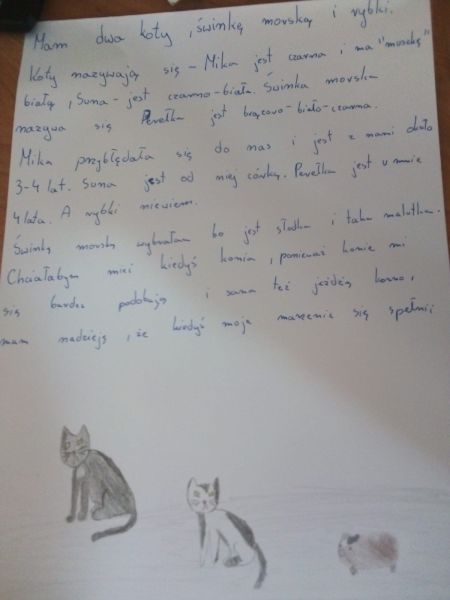 Mam dwa koty, świnkę morską i rybki.
Koty nazywają się - Mika jest czarna i ma "muszkę"
białą, Suna - jest czarno-biała. Świnka morska
nazywa się Perełka jest brązowo-biało-czarna.
Mika przybłędała się do nas i jest z nami około
3-4 lat. Suna jest od niej córką. Perełka jest u mnie
4 lata. A rybki niewiem.
Świnkę morską wybrałam bo jest słodka i taka malutka.
Chciałabym mieć kiedyś konia, ponieważ konie mi
się bardzo podobają i sama też jeżdżę konno,
mam nadzieję, że kiedyś moje marzenie się spełni